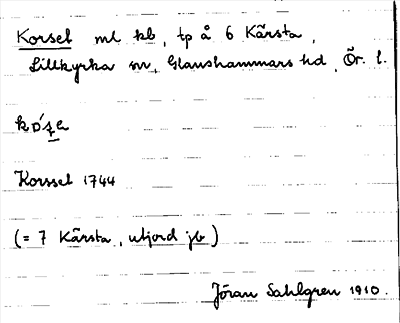 Korsel ml kb, tp å 6 Kärsta,
Lillkyrka sn, Glanshammars hd, Ör. l.
Korssel 1744
(= 7 Kärsta, utjord jb)
Jöran Sahlgren 1910.